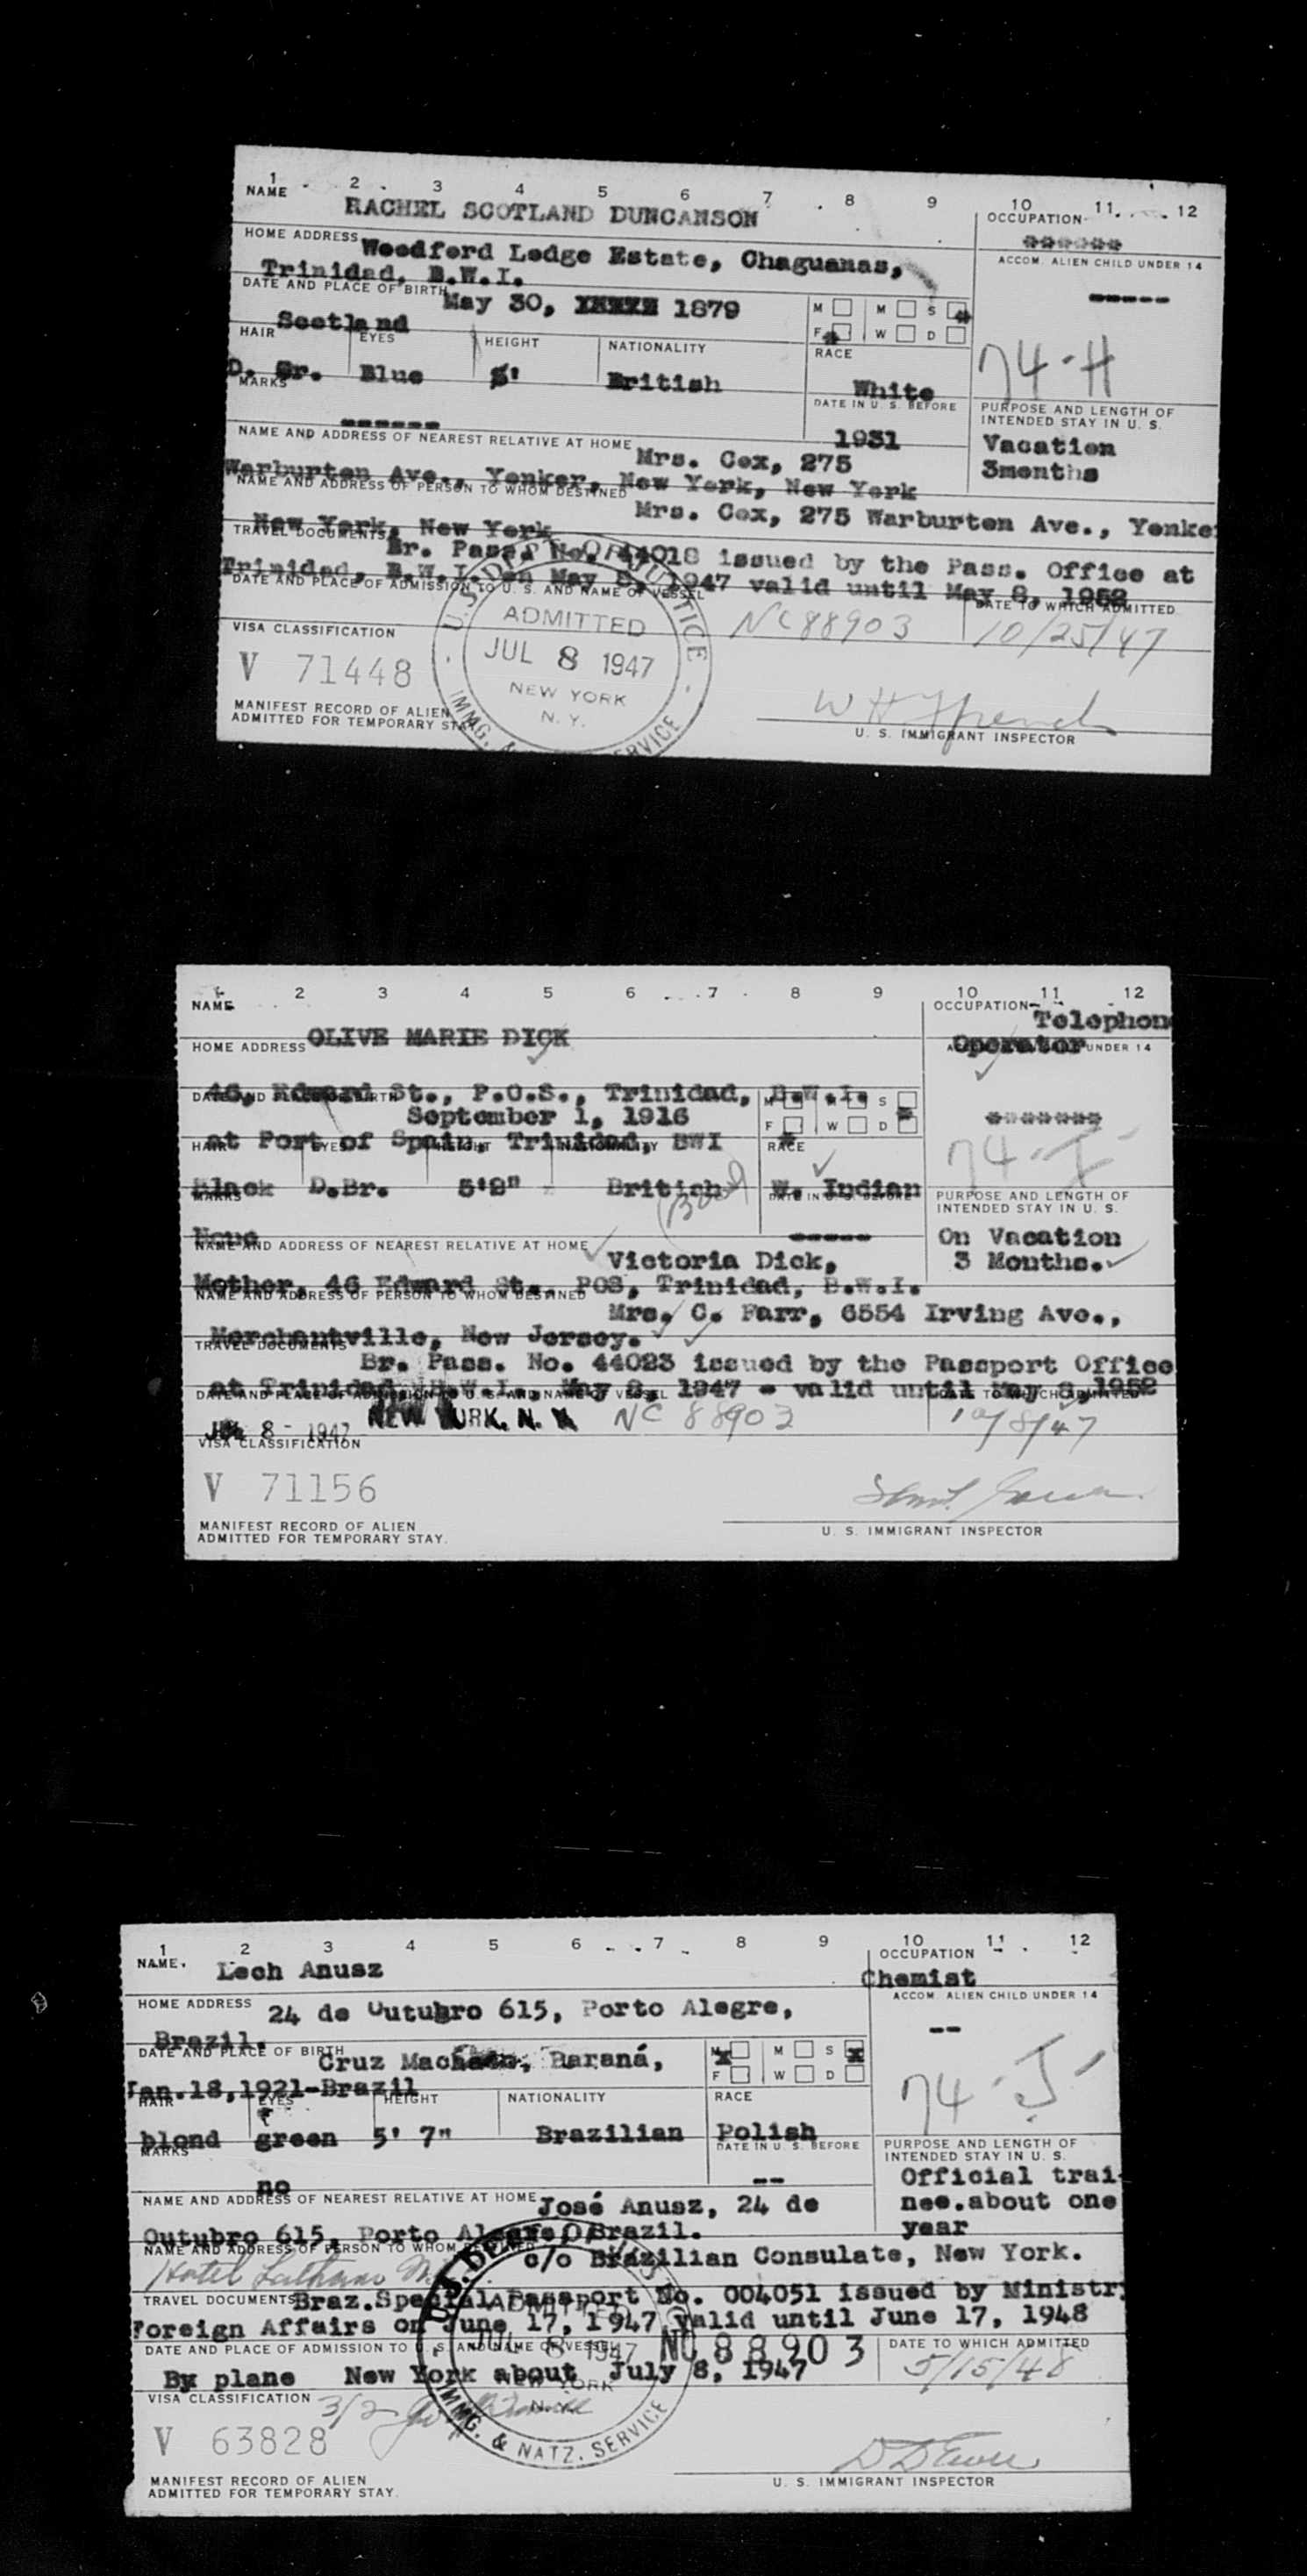 1 2 3 4 5 6 7 8 9 10 11 12
NAME RACHEL SCOTLAND DUNCANSON OCCUPATION ******
HOME ADDRESS Woodford Lodge Estate, Chaguanas, ACCOM. ALIEN CHILD UNDER 14
Trinidad, B.W.I. -----
DATE AND PLACE OF BIRTH May 30, 1879 M M S
Scotland F W D
HAIR EYES HEIGHT NATIONALITY RACE 74-H
D. Gr. Blue 5' British White
MARKS DATE IN U. S. BEFORE PURPOSE AND LENGTH OF
INTENDED STAY IN U. S.
------ 1931 Vacation
NAME AND ADDRESS OF NEAREST RELATIVE AT HOME Mrs. Cox, 275 3months
Warburton Ave., Yonker, New York, New York
NAME AND ADDRESS OF PERSON TO WHOM DESTINED Mrs. Cox, 275 Warburton Ave., Yonker
New York, New York
TRAVEL DOCUMENTS Br. Pass. No. 44018 issued by the Pass. Office at
Trinidad, B.W.I. on May 8, 1947 valid until May 8, 1952
DATE AND PLACE OF ADMISSION TO U. S. AND NAME OF VESSEL DATE TO WHICH ADMITTED
NC88903 10/25/47
VISA CLASSIFICATION
V 71448
U.S. DEPT. OF JUSTICE
ADMITTED
JUL 8 1947
NEW YORK
N. Y.
IMMG. & SERVICE
MANIFEST RECORD OF ALIEN
ADMITTED FOR TEMPORARY STAY
W H French
U. S. IMMIGRANT INSPECTOR
1 2 3 4 5 6 7 8 9 10 11 12
NAME OCCUPATION Telephon
OLIVE MARIE DICK Operator UNDER 14
HOME ADDRESS
46, Edward St., P.O.S., Trinidad, B.W.I. M M S
September 1, 1916 F W D *******
at Port of Spain, Trinidad, BWI
HAIR EYES HEIGHT NATIONALITY RACE 74-I
Black D.Br. 5'2" British W. Indian
MARKS DATE IN U. S. BEFORE PURPOSE AND LENGTH OF
INTENDED STAY IN U. S.
None ----- On Vacation
NAME AND ADDRESS OF NEAREST RELATIVE AT HOME Victoria Dick, 3 Months.
Mother, 46 Edward St., POS, Trinidad, B.W.I.
NAME AND ADDRESS OF PERSON TO WHOM DESTINED Mrs. C. Farr, 6554 Irving Ave.,
Merchantville, New Jersey.
TRAVEL DOCUMENTS Br. Pass. No. 44023 issued by the Passport Office
at Trinidad, B.W.I., May 8, 1947 - valid until May 8, 1952
DATE AND PLACE OF ADMISSION TO U. S. AND NAME OF VESSEL DATE TO WHICH ADMITTED
JUL 8 - 1947 NEW YORK, N. Y. NC 88903 10/8/47
VISA CLASSIFICATION
V 71156
MANIFEST RECORD OF ALIEN
ADMITTED FOR TEMPORARY STAY.
U. S. IMMIGRANT INSPECTOR
1 2 3 4 5 6 7 8 9 10 11 12
NAME. Lech Anusz OCCUPATION
Chemist
HOME ADDRESS 24 de Outubro 615, Porto Alegre, ACCOM. ALIEN CHILD UNDER 14
Brazil. --
DATE AND PLACE OF BIRTH Cruz Machado, Paraná, M M S
Jan.18,1921-Brazil F W D
HAIR EYES HEIGHT NATIONALITY RACE 74-J
blond green 5' 7" Brazilian Polish
MARKS DATE IN U. S. BEFORE PURPOSE AND LENGTH OF
INTENDED STAY IN U. S.
no -- Official trai-
NAME AND ADDRESS OF NEAREST RELATIVE AT HOME José Anusz, 24 de nee.about one
Outubro 615, Porto Alegre, Brazil. year
NAME AND ADDRESS OF PERSON TO WHOM DESTINED c/o Brazilian Consulate, New York.
Hotel Latham
TRAVEL DOCUMENTS Braz.Special Passport No. 004051 issued by Ministry
Foreign Affairs on June 17, 1947, valid until June 17, 1948
DATE AND PLACE OF ADMISSION TO U. S. AND NAME OF VESSEL NC 88903 DATE TO WHICH ADMITTED
By plane New York about July 8, 1947 5/15/48
VISA CLASSIFICATION 3/2
V 63828
ADMITTED
JUL 8 1947
NEW YORK
N. Y.
IMMG. & NATZ. SERVICE
MANIFEST RECORD OF ALIEN
ADMITTED FOR TEMPORARY STAY.
U. S. IMMIGRANT INSPECTOR